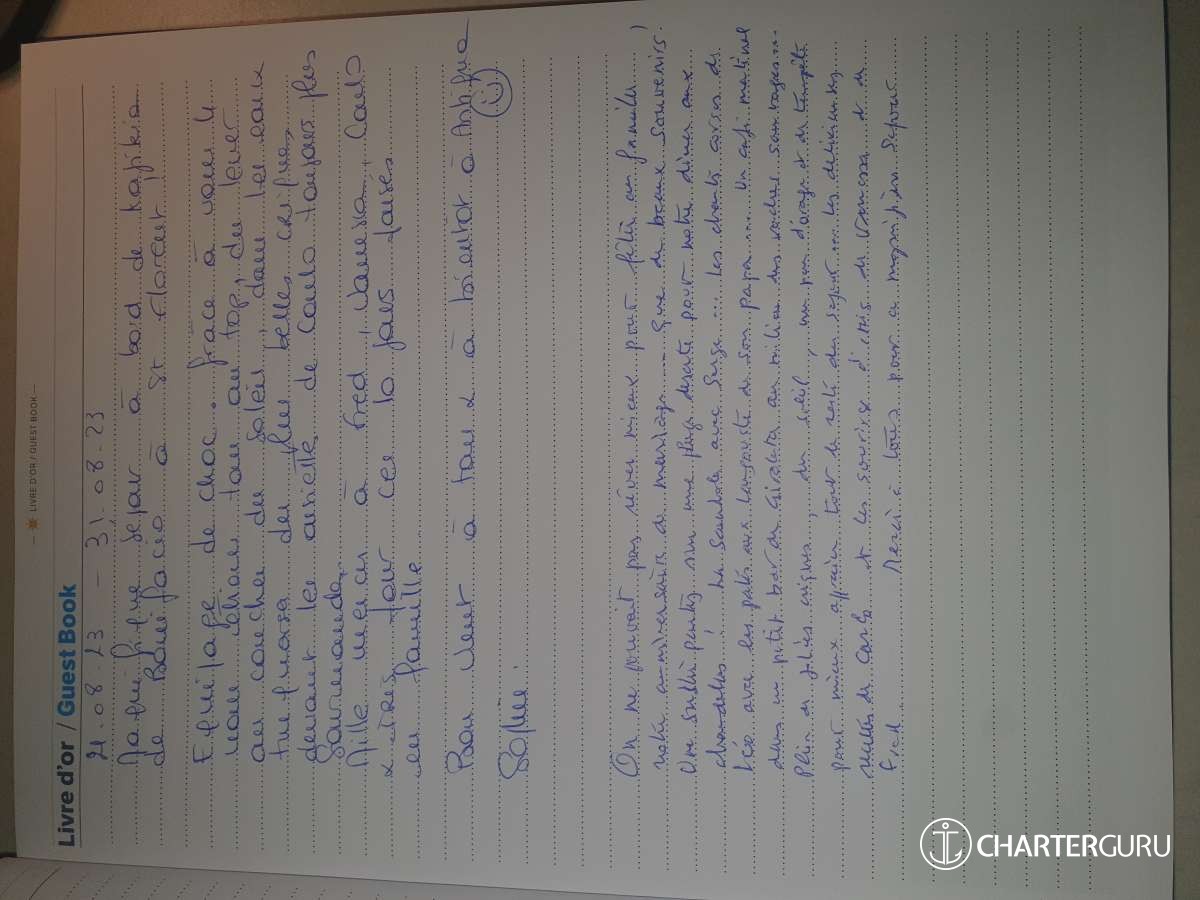 LIVRE D'OR / GUEST BOOK
Livre d'or / Guest Book
21.08.23 - 31.08.23
Magnifique séjour à bord de Kajikia
de Bonifacio à St Florent
Equipage de choc. grâce à vous
nous étions tous au top, du lever
au coucher du soleil, dans les eaux
turquoises des plus belles criques,
devant les assiettes de Carlo toujours plus
Gourmandes,
Mille mercis à Fred, Vanessa, Carlo
pour ces 10 jours passés
en famille
Bon vent à tous & à bientôt à Antigua
Sophie.
On ne pouvait pas rêver mieux pour fêter en famille
notre anniversaire de mariage.... que de beaux souvenirs.
Une surprise party sur une plage déserte pour notre dîner aux
chandelles, la Sardaigne avec Serge... les chants corses de
Léo avec les pâtes aux langoustes de son papa.... Un café matinal
dans un petit bar de Girolata au milieu des vaches sauvages...
Plein de jolies criques, du soleil, un peu d'orage et de tempête
pour mieux apprécier tout le reste du séjour... les délicieuses
de Carlo et les sourires de Vanessa et de
Fred. Merci à tous pour ce magnifique séjour
CHARTERGURU